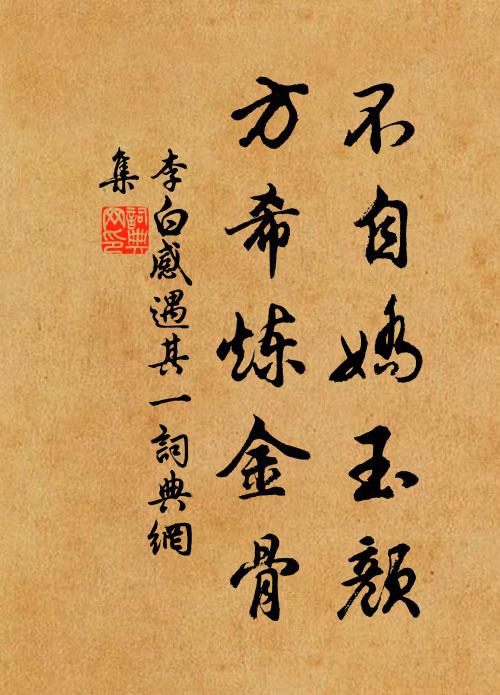 不自嬌玉顏
方希炼金骨
李白感遇其一詞典網
集
詞典
网印